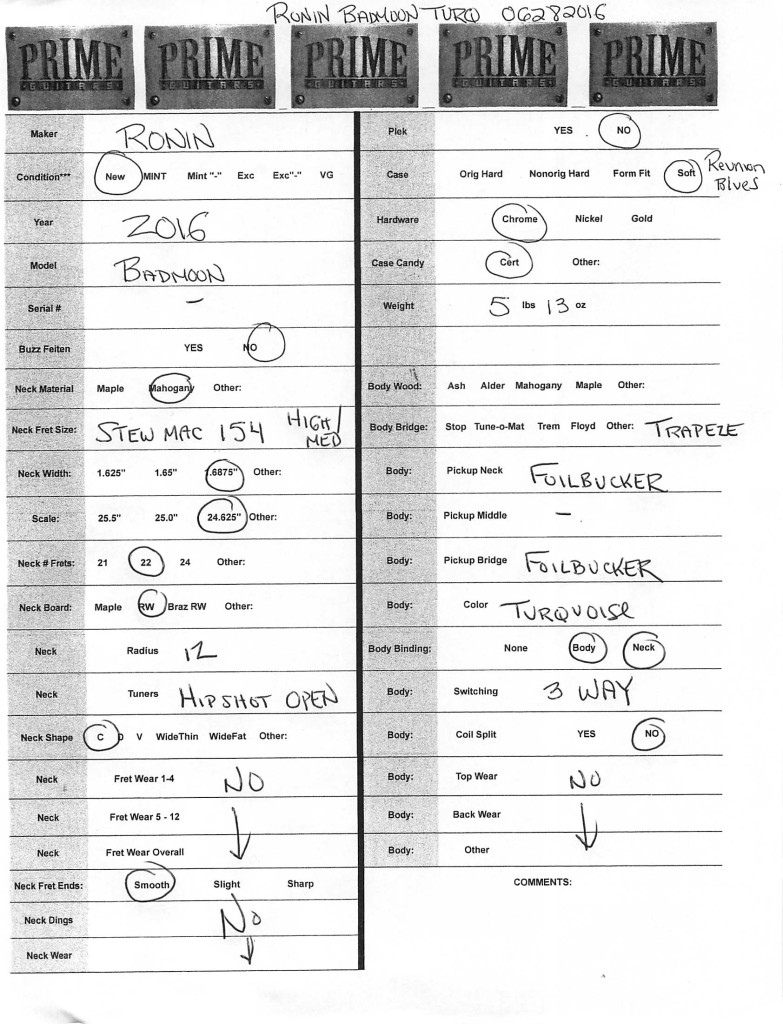 RONIN BADMOON TURQ 06282016
PRIME GUITARS PRIME GUITARS PRIME GUITARS PRIME GUITARS PRIME GUITARS
Maker RONIN
Condition*** New MINT Mint "-" Exc Exc"-" VG
Year 2016
Model BADMOON
Serial # –
Buzz Feiten YES NO
Neck Material Maple Mahogany Other:
Neck Fret Size: STEW MAC 154 HIGH/MED
Neck Width: 1.625" 1.65" 1.6875" Other:
Scale: 25.5" 25.0" 24.625" Other:
Neck # Frets: 21 22 24 Other:
Neck Board: Maple RW Braz RW Other:
Neck Radius 12
Neck Tuners HIPSHOT OPEN
Neck Shape C D V WideThin WideFat Other:
Neck Fret Wear 1-4 NO
Neck Fret Wear 5 - 12
Neck Fret Wear Overall
Neck Fret Ends: Smooth Slight Sharp
Neck Dings NO
Neck Wear
Plek YES NO
Case Orig Hard Nonorig Hard Form Fit Soft REUNION BLUES
Hardware Chrome Nickel Gold
Case Candy Cert Other:
Weight 5 lbs 13 oz
Body Wood: Ash Alder Mahogany Maple Other:
Body Bridge: Stop Tune-o-Mat Trem Floyd Other: TRAPEZE
Body: Pickup Neck FOILBUCKER
Body: Pickup Middle –
Body: Pickup Bridge FOILBUCKER
Body: Color TURQUOISE
Body Binding: None Body Neck
Body: Switching 3 WAY
Body: Coil Split YES NO
Body: Top Wear NO
Body: Back Wear
Body: Other
COMMENTS: